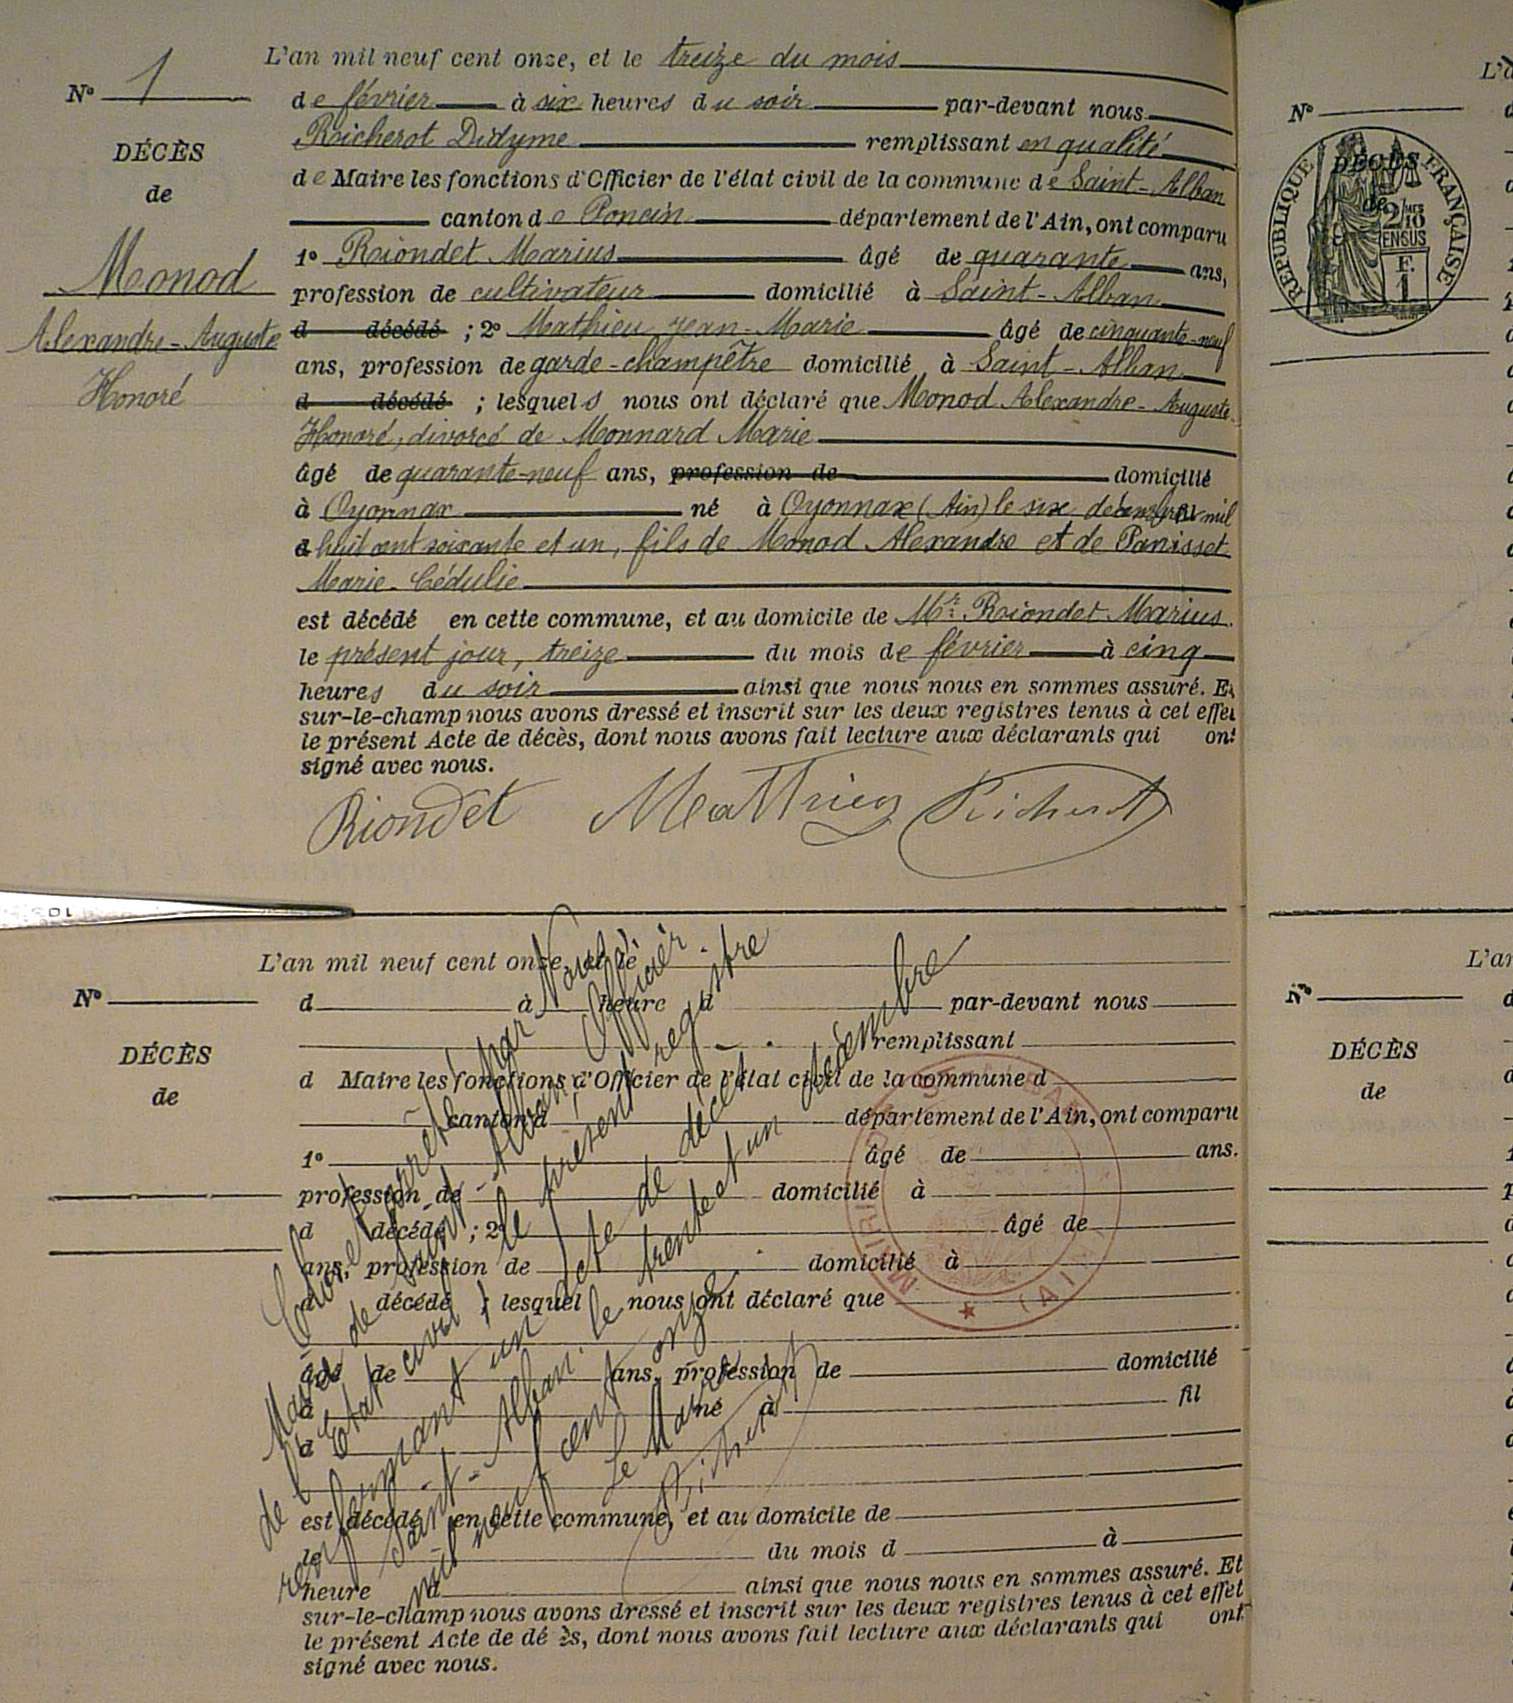 L'an mil neuf cent onze, et le treize du mois
N° 1
de février à six heures du soir par-devant nous
Richerot Didyme remplissant en qualité
DÉCÈS
de Maire les fonctions d'Officier de l'état civil de la commune de Saint-Alban
de
canton de Poncin département de l'Ain, ont comparu
Monod
1° Riondet Marius âgé de quarante ans,
profession de cultivateur domicilié à Saint-Alban
Alexandre-Auguste
d décédé ; 2° Mathieu Jean-Marie âgé de cinquante-neuf
ans, profession de garde-champêtre domicilié à Saint-Alban
Honoré
d décédé ; lesquels nous ont déclaré que Monod Alexandre-Auguste
Honoré, divorcé de Monnard Marie
âgé de quarante-neuf ans, profession de domicilié
à Oyonnax né à Oyonnax (Ain) le six décembre mil
huit cent soixante et un, fils de Monod Alexandre et de Panisset
Marie-Cédulie
est décédé en cette commune, et au domicile de Mr Riondet Marius.
le présent jour, treize du mois de février à cinq
heures du soir ainsi que nous nous en sommes assuré. Et
sur-le-champ nous avons dressé et inscrit sur les deux registres tenus à cet effet
le présent Acte de décès, dont nous avons fait lecture aux déclarants qui ont
signé avec nous.
Riondet Matthieu Richerot
L'an mil neuf cent onze, et le
N°
d à heure d par-devant nous
remplissant
DÉCÈS
d Maire les fonctions d'Officier de l'état civil de la commune d
de
canton d département de l'Ain, ont comparu
1° âgé de ans.
profession de domicilié à
d décédé ; 2° âgé de
ans, profession de domicilié à
d décédé ; lesquel nous ont déclaré que
âgé de ans, profession de domicilié
à né à fil
d
est décédé en cette commune, et au domicile de
le du mois d à
heure d ainsi que nous nous en sommes assuré. Et
sur-le-champ nous avons dressé et inscrit sur les deux registres tenus à cet effet
le présent Acte de décès, dont nous avons fait lecture aux déclarants qui ont
signé avec nous.
Clos et arrêté par Nous
Maire de Saint-Alban, Officier
de l'Etat civil, le présent registre
renfermant un acte de décès.
Saint-Alban, le trente et un décembre
mil neuf cent onze.
Le Maire
Richerot
MAIRIE (AIN)
N°
RÉPUBLIQUE FRANÇAISE
DÉCÈS
de
2/10 MES
EN SUS
F.
1
N°
DÉCÈS
de
L'an
L'an